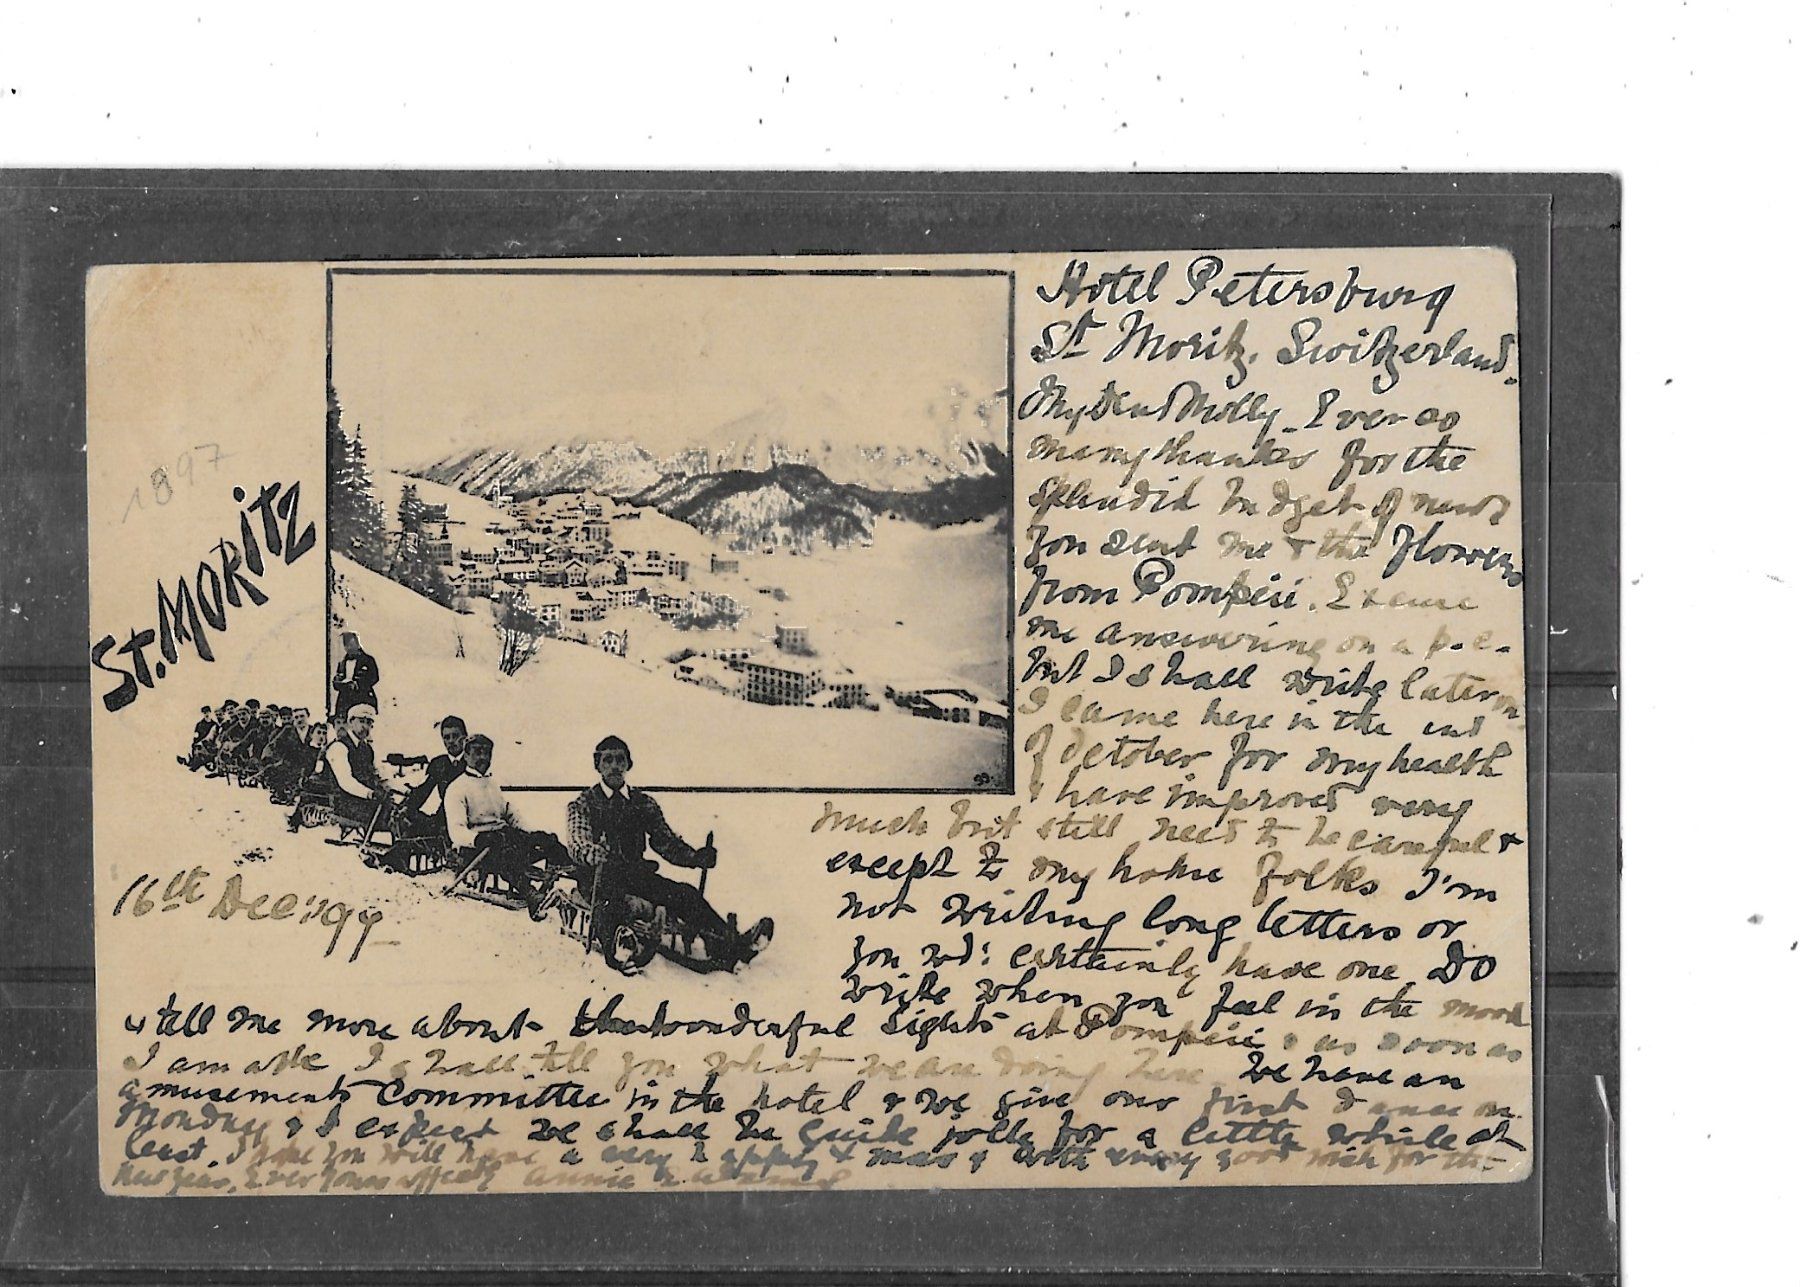 Hotel Petersburg
St Moritz. Switzerland.
My dear Molly_ Ever so
many thanks for the
splendid budget of news
you sent me & the flowers
from Pompeii. Excuse
me answering on a p.c.
but I shall write later on
I came here in the end
of October for my health
& have improved very
much but still need to be careful &
except to my home folks I'm
not writing long letters or
you wd: certainly have one Do
write when you feel in the mood
& tell me more about the wonderful sights at Pompeii & as soon as
I am able I shall tell you what we are doing here. We have an
amusements Committee in the hotel & we give our first dance on
Monday & I expect we shall be quite jolly for a little while at
least. I hope you will have a very happy Xmas & with every good wish for the
New Year. Ever yours affectly Annie
1897
ST. MORITZ
16th Dec: '97